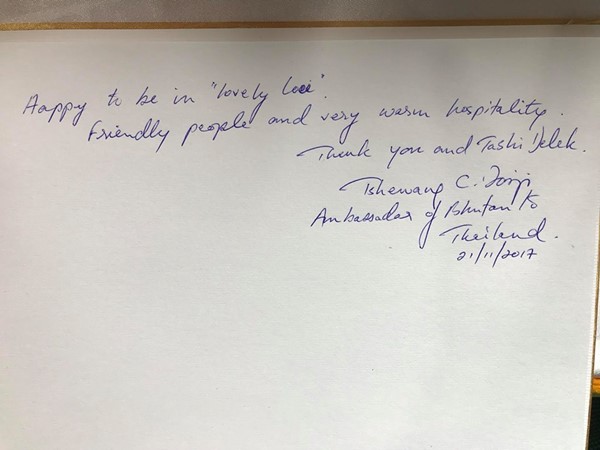 Happy to be in "lovely Loei".
Friendly people and very warm hospitality.
Thank you and Tashi Delek.
Tshewang C. Dorji
Ambassador of Bhutan to
Thailand.
21/11/2017